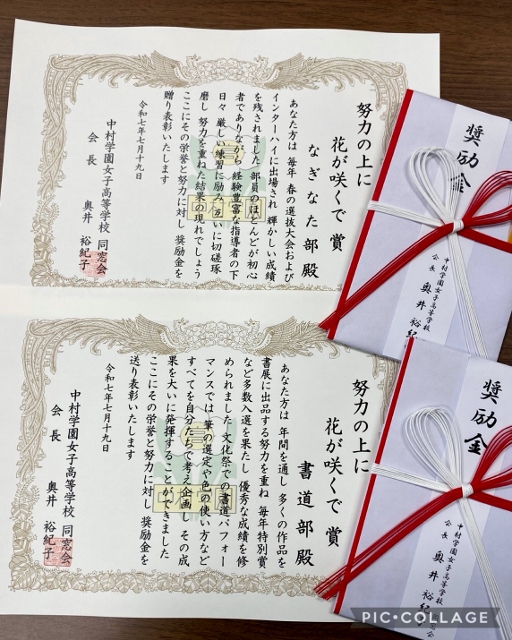 努力の上に
花が咲くで賞
なぎなた部殿
あなた方は 毎年 春の選抜大会および
インターハイに出場され 輝かしい成績
を残されました 部員のほとんどが初心
者でありながら 経験豊富な指導者の下
日々 厳しい練習に励み 互いに切磋琢
磨し 努力を重ねた結果の現れでしょう
ここにその栄誉と努力に対し 奨励金を
贈り表彰いたします
令和七年七月十九日
中村学園女子高等学校 同窓会
会長 奥井 裕紀子
奨励金
中村学園女子高等学校
会長 奥井 裕紀
努力の上に
花が咲くで賞
書道部殿
あなた方は 年間を通し 多くの作品を
書展に出品する努力を重ね 毎年特別賞
など多数入選を果たし 優秀な成績を修
められました 文化祭での書道パフォー
マンスでは 筆の選定や色の使い方など
すべてを自分たちで考え企画し その成
果を大いに発揮することができました
ここにその栄誉と努力に対し 奨励金を
送り表彰いたします
令和七年七月十九日
中村学園女子高等学校 同窓会
会長 奥井 裕紀子
奨励金
中村学園女子高等学校
会長 奥井 裕紀
PIC•COLLAGE